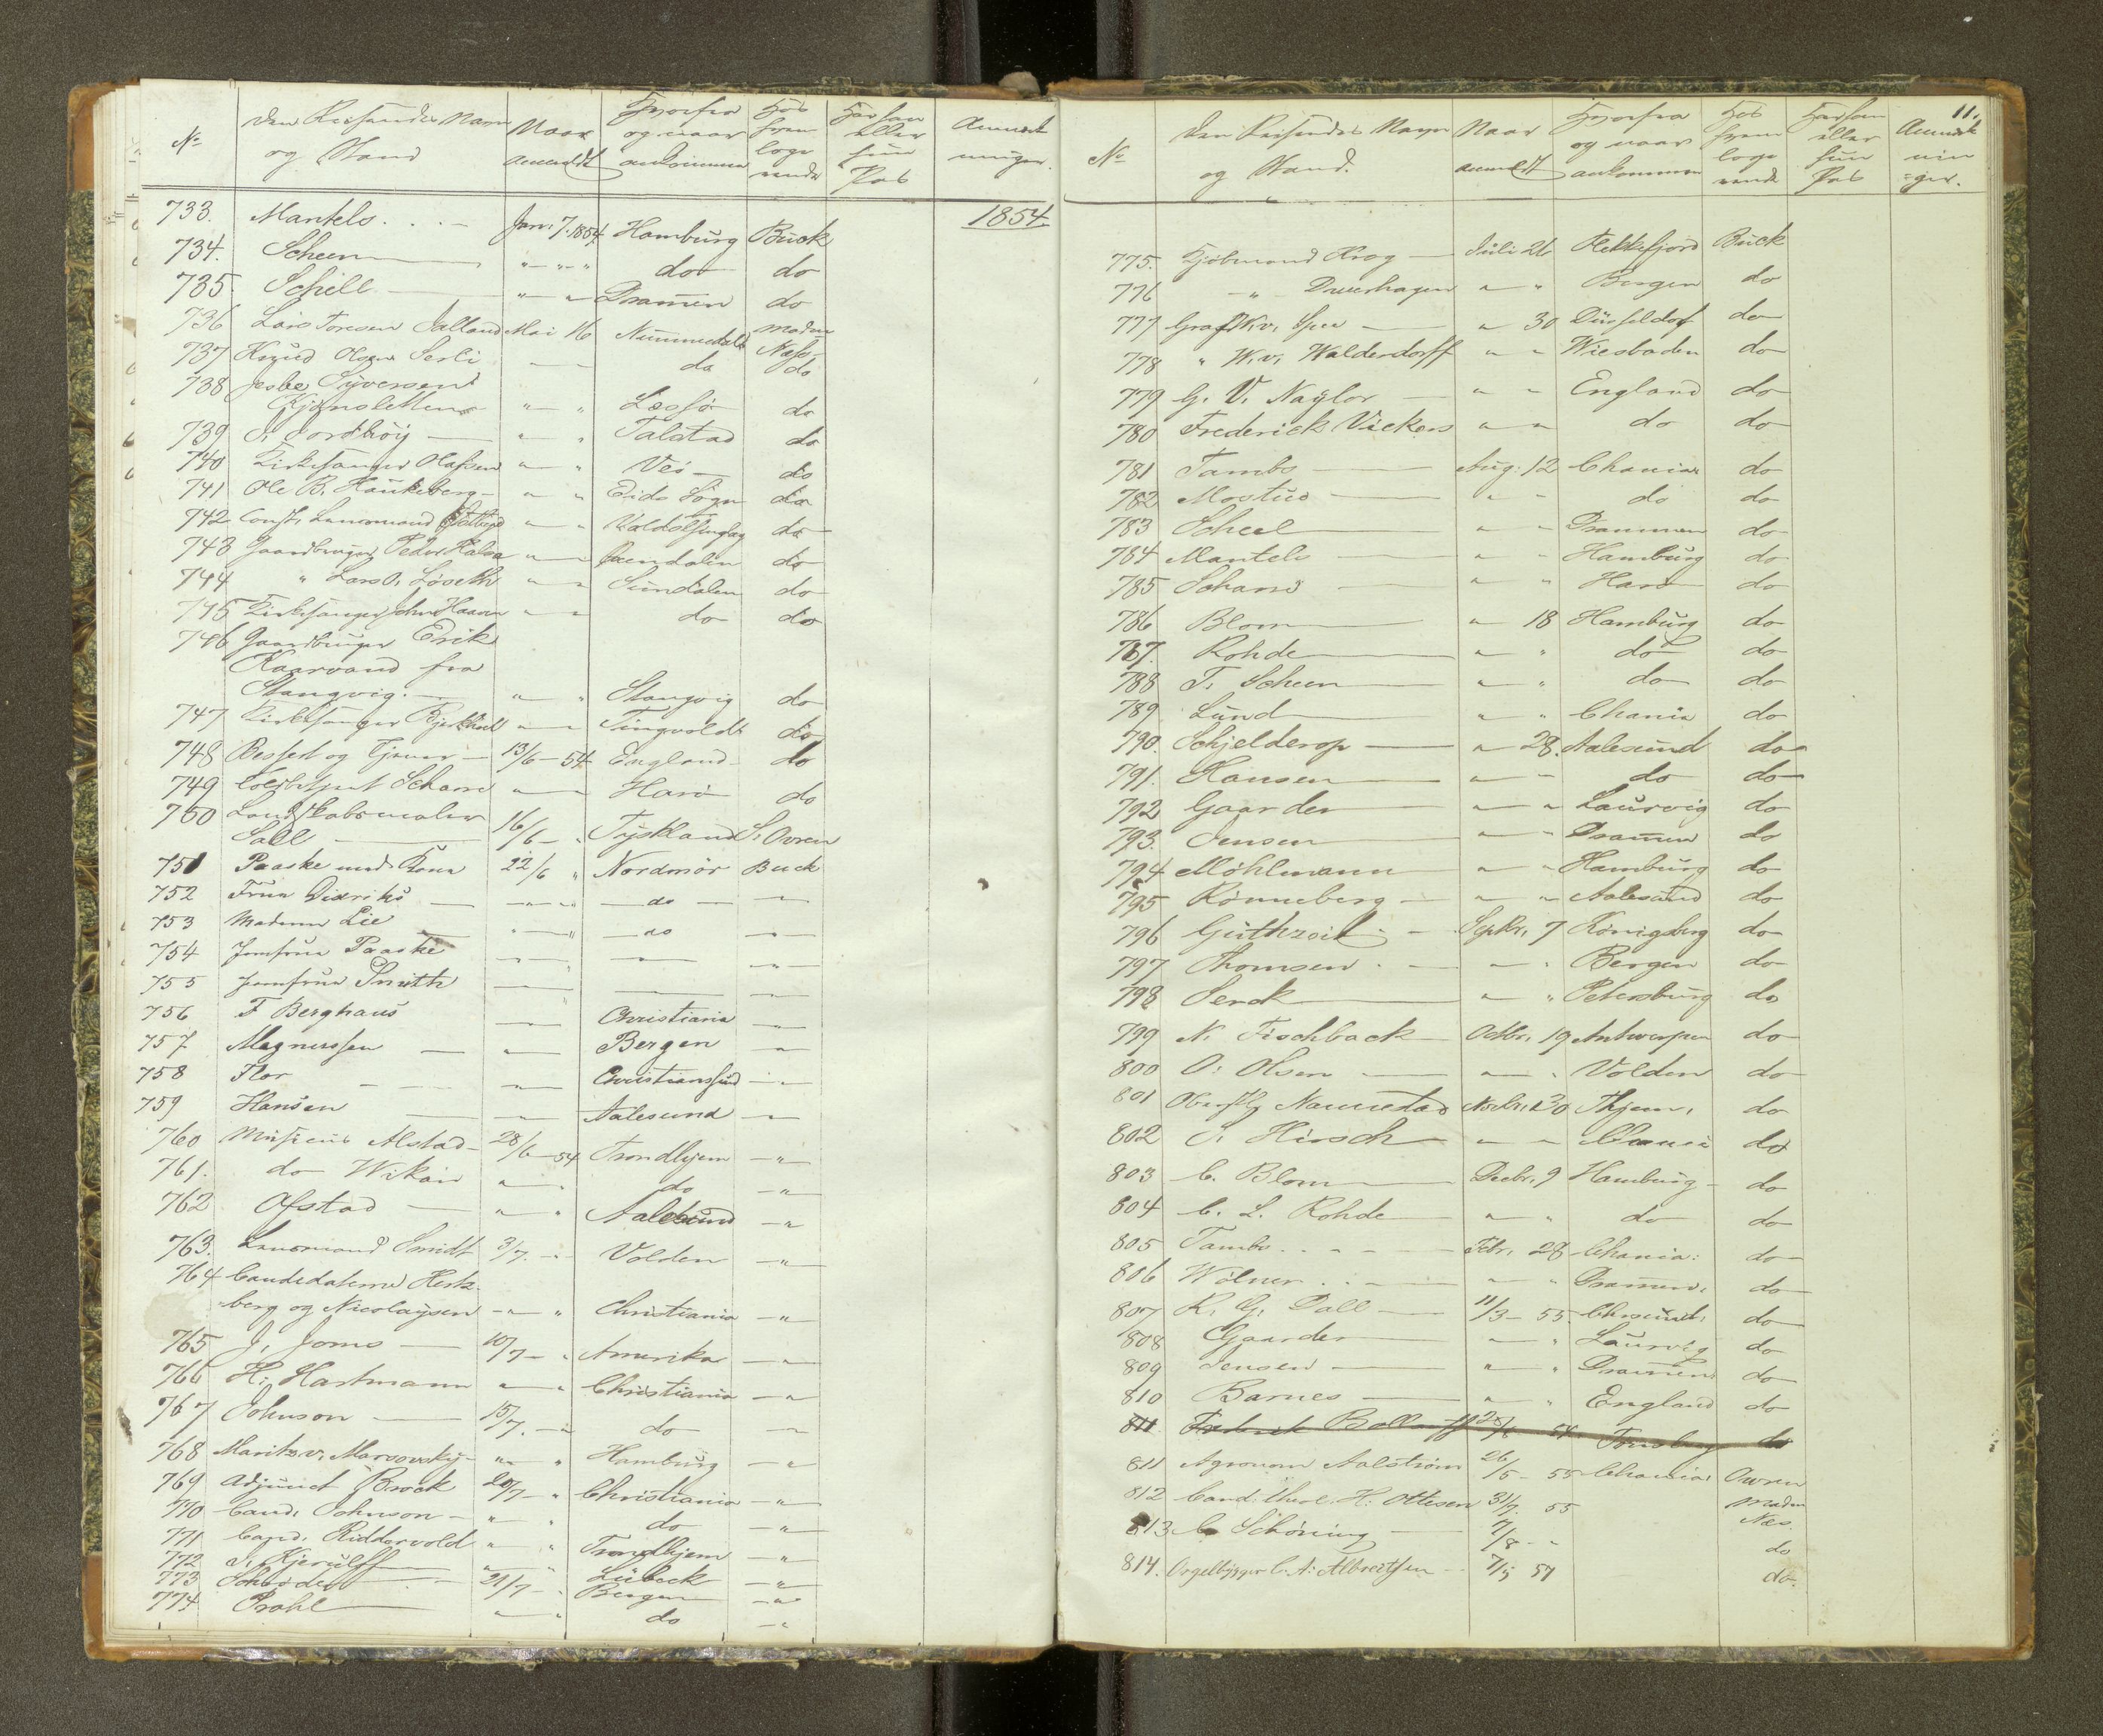 No Den Reisendes Navn og Stand Naar anmeldt Hvorfra og naar ankommen Hos hvem logerende Har han eller hun Pas Anmærkninger.
733. Mantels Jan: 7. 1854 Hamburg Buck 1854
734. Scheen " " " do do
735. Schiell " " Drammen do
736 Lars Toresen Mai 16 Madm Næss
737 Knud Olsen Serli do do
738 Syversen
" " Lessø do
739 " " do
740 Kirkesanger Olafsen " " Veø do
741 Ole B. Haukeberg " " Eids Sogn do
742 Const. Lensmand " " do
743 Gaardbruger Peder " " do
744 " Lars O. Løseth " " Sundalen do
745 Kirkesanger John " " do do
746 Gaardbruger Erik
Kaarvand fra
Stangvig. " " Stangvig do
747 Kirkesanger " " Tingvoldt do
748 og 13/6 - 54 England do
749 Schan " " Harø do
750 Landskabsmaler
Sall 16/6 - " Tyskland S. Ovren
751 Paaske med Kone 22/6 " Nordmør Buck
752 Frue Dideriks — " — " do —
753 Madame Lie " — " do —
754 Jomfrue Paaske — — —
755 Jomfrue Smith — — —
756 F Berghaus — Christiania —
757 Magnussen — Bergen —
758 Flor — Christianssund —
759 Hansen — Aalesund —
760 Musicus Alstad 28/6 - 54 Trondhjem — " —
761. do Wikan " " do — " —
762 Ofstad " " Aalesund — "
763. Lensmand Smidt 3/7. - " Volden — " —
764 Candidaterne Hertz-
berg og Nicolaysen - " " Christiania — " —
765 J. Joms 10/7 - " Amerika — "
766 H. Hartmann " " Christiania — "
767 Johnson 15/7. - " do — "
768 Moritz v. " " Hamburg — "
769 Adjunct Brock 20/7 - " Christiania — "
770 Cand. Johnson " " do — " —
771 Cand. Riddervold " " Trondhjem — " —
772 J. Kjerulff " " Lübeck — " —
773 Schrøder 21/7 - " Bergen — " —
774 Prahl " " do — "
11.
No Den Reisendes Navn og Stand. Naar anmeldt Hvorfra og naar ankommen Hos hvem logerende Har han eller hun Pas Anmærkninger.
775. Kjøbmand Krog Juli 26 Flekkefjord Buck
776 — " " " Bergen do
777 Graf W. v. Spee " 30 Düsseldorf do
778 " W. v. Walderdorff " " Wiesbaden do
779 G. V. Naylor " " England do
780 Frederick Vickers " " do do
781 Tambs Aug: 12 Chania do
782 Mostue " " do do
783 Scheel " " Drammen do
784 Mantels " " Hamburg do
785 Schan " " Harø do
786 Blom " 18 Hamburg do
787. Rohde " " do do
788 T. Scheen " " do do
789 Lund " " Chania do
790. Schjelderop " 28. Aalesund do
791. Hansen " " do do
792 Gaarder " " Laurvig do
793. Jensen " " Drammen do
794 Møhlmann " " Hamburg do
795 Rønneberg " " Aalesund do
796 Guthzeit Septbr. 7 Königsberg do
797 Thomsen. " " Bergen do
798 Senck " " Petersburg do
799 N. Fischback Octbr. 19 Antwerpen do
800 O. Olsen " " Volden do
801 Novbr. 30 Thjem. do
802 S. Hirsch " " Chania do
803 C. Blom Decbr. 9 Hamburg do
804 C. L. Rohde " " do do
805 Tambs Febr. 28 Chania: do
806 Wølner " " Drammen. do
807 R. G. Dall 11/3 - 55 Chrsund. do
808 Gaarder " " Laurvig do
809 Jensen " " Drammen do
810 Barnes " " England do
811 Frederik 54 Tønsberg do
811 Agronom Aalstrøm 26/5 - 55 Chania: Owren
812 Cand. theol. H. Ottesen 31/7. 55 Madm Næs.
813 C. Schøning 7/8 - - do
814. Orgelbygger C. A. Albrectsen 7/5 57 do.